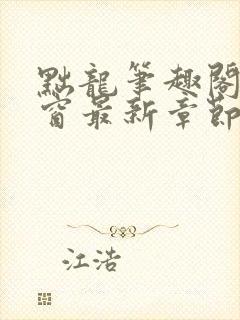 點龍筆趣閣
窗最新章節
江浩